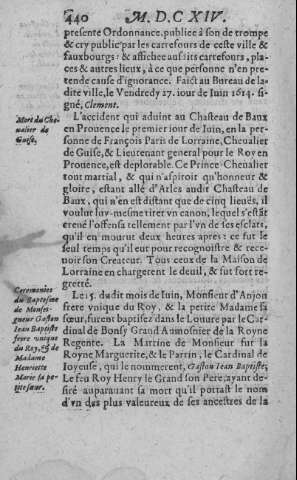 440 M. D. C XIV.
presente Ordonnance, publiee à son de trompe
& cry public par les carrefours de ceste ville &
fauxbourgs: & affichee ausdits carrefours, pla-
ces & autres lieux, à ce que personne n'en pre-
tende cause d'ignorance. Faict au Bureau de la-
dite ville, le Vendredy 27. iour de Iuin 1614. si-
gné, Clement.
Mort du Che-
ualier de
Guise.
L'accident qui aduint au Chasteau de Baux
en Prouence le premier iour de Iuin, en la per-
sonne de François Paris de Lorraine, Cheualier
de Guise, & Lieutenant general pour le Roy en
Prouence, est deplorable. Ce Prince-Cheualier
tout martial, & qui n'aspiroit qu'honneur &
gloire, estant allé d'Arles audit Chasteau de
Baux, qui n'en est distant que de cinq lieuës, il
voulut luy-mesme tirer vn canon, lequel s'estāt
creué l'offensa tellement par l'vn de ses esclats,
qu'il en mourut deux heures apres: ce fut le
seul temps qu'il eut pour recognoistre & rece-
uoir son Createur. Tous ceux de la Maison de
Lorraine en chargerent le deuil, & fut fort re-
gretté.
Ceremonies
du Baptesme
de Monsei-
gneur Gaston
Iean Baptiste
frere vnique
du Roy, & de
Madame
Henriette
Marie sa pe-
tite sœur.
Le 15. dudit mois de Iuin, Monsieur d'Anjou
frere vnique du Roy, & la petite Madame sa
sœur, furent baptisez dans le Louure par le Car-
dinal de Bonsy Grand Aumosnier de la Royne
Regente. La Marrine de Monsieur fut la
Royne Marguerite, & le Parrin, le Cardinal de
Ioyeuse, qui le nommerent, Gaston Iean Baptiste;
Le feu Roy Henry le Grand son Pere, ayant de-
siré auparauant sa mort qu'il portast le nom
d'vn des plus valeureux de ses ancestres de la